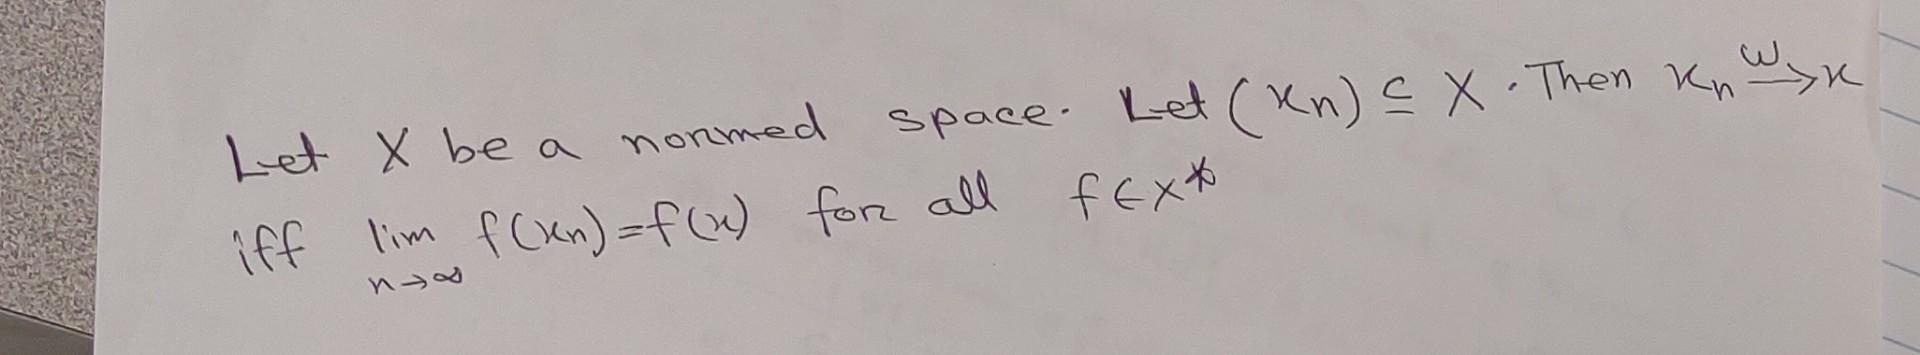 Let X be a normed space. Let (xn) ⊆ X. Then xn w→ x
iff lim n→∞ f(xn)=f(x) for all f∈X*